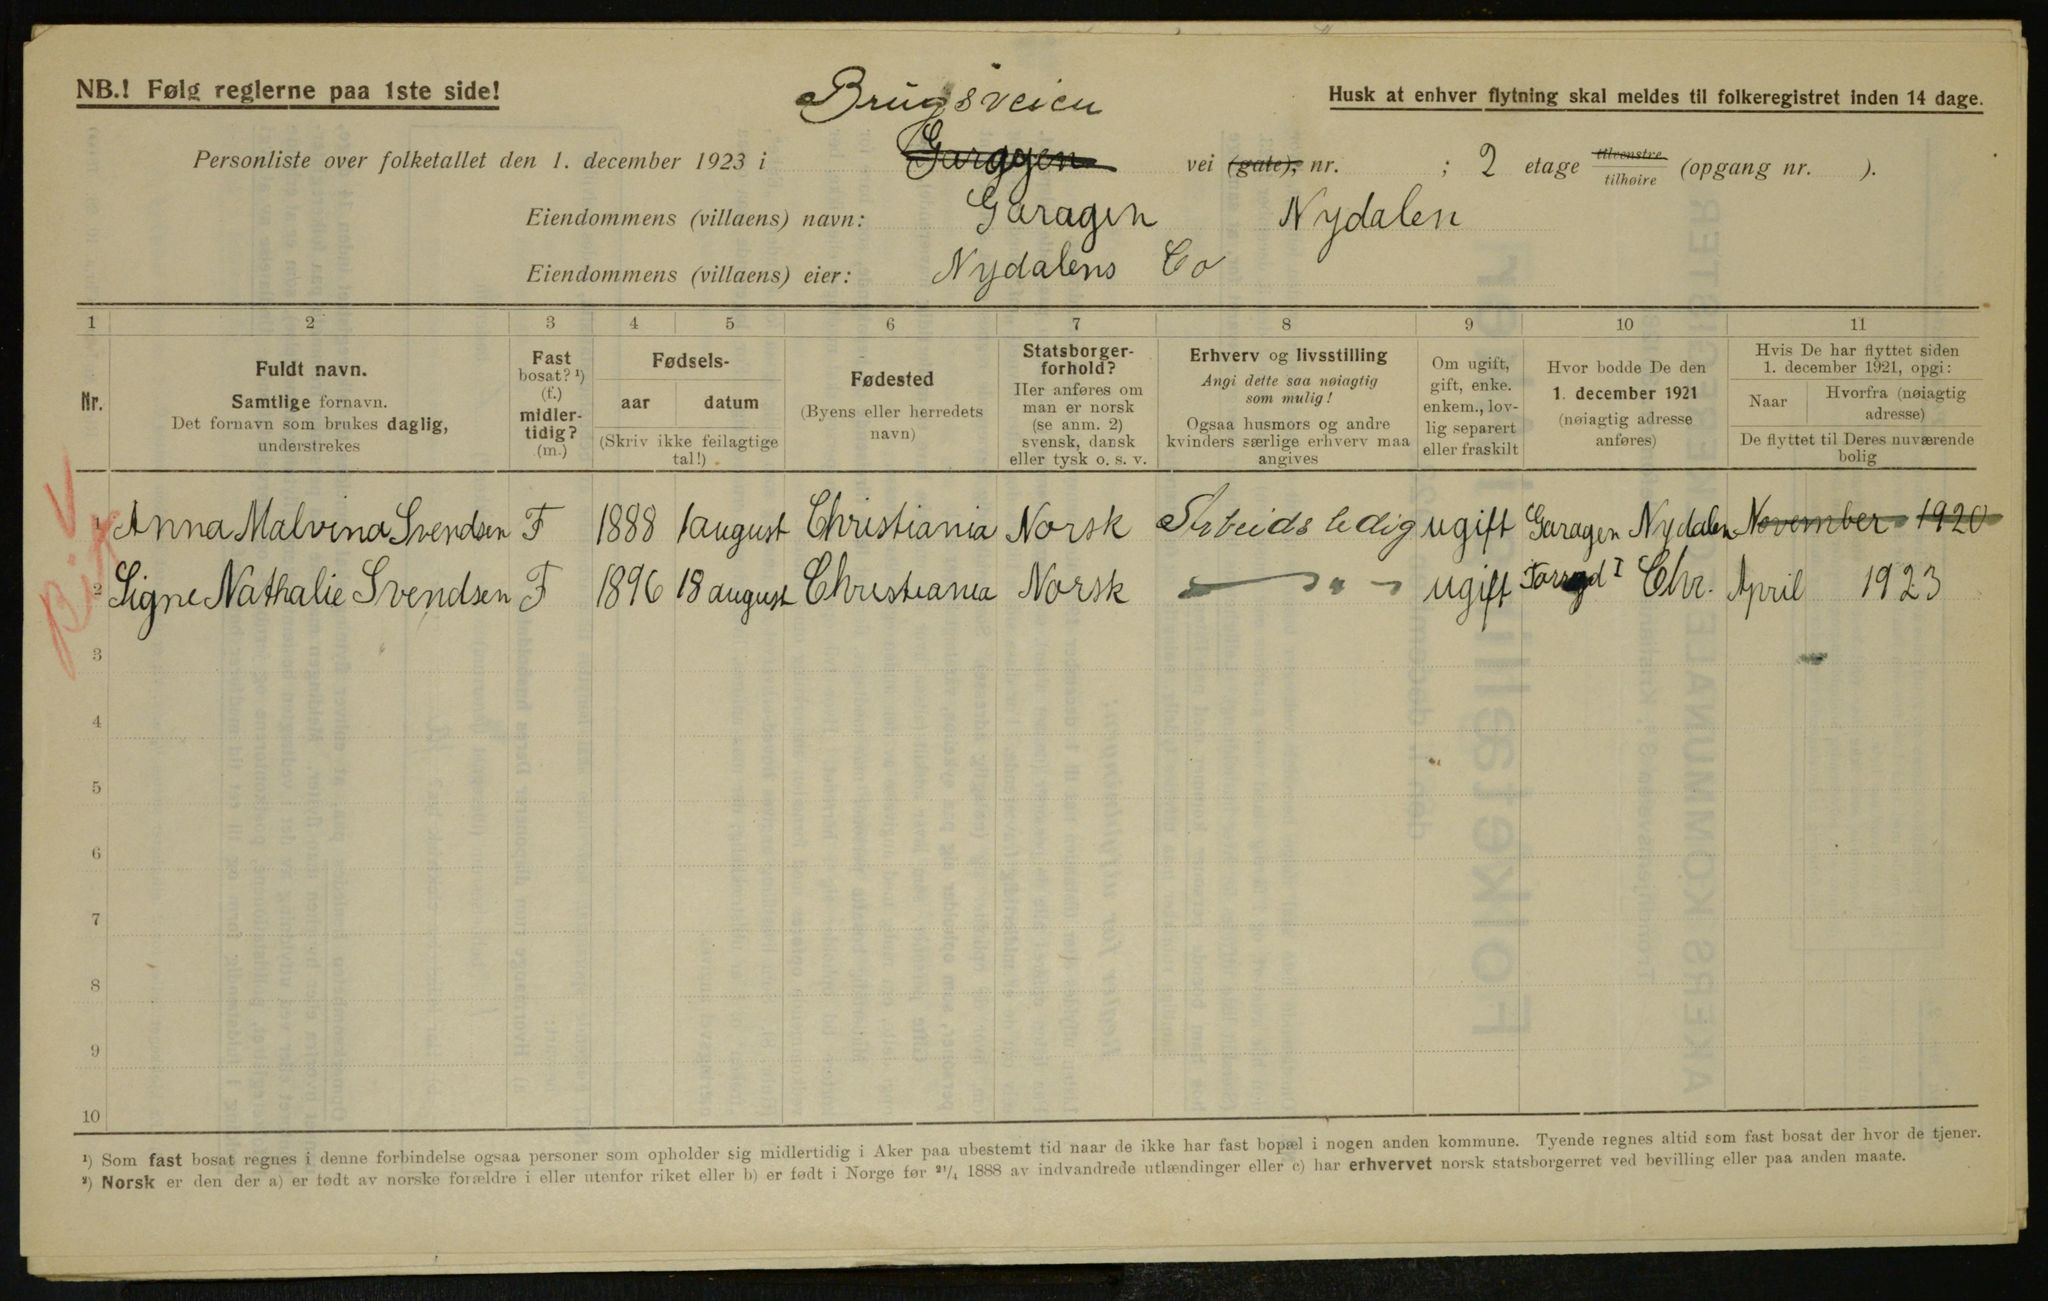 NB.! Følg reglerne paa 1ste side!
Husk at enhver flytning skal meldes til folkeregistret inden 14 dage.
Brugsveien
Personliste over folketallet den 1. december 1923 i Garagen vei (gate), nr. ; 2 etage tilvenstre tilhøire (opgang nr. ).
Eiendommens (villaens) navn: Garagen Nydalen
Eiendommens (villaens) eier: Nydalens Co
1 2 3 4 5 6 7 8 9 10 11
Nr.
Fuldt navn.
Samtlige fornavn.
Det fornavn som brukes daglig, understrekes
Fast bosat? ¹) (f.) midlertidig? (m.)
Fødsels-
aar datum
(Skriv ikke feilagtige tal!)
Fødested
(Byens eller herredets navn)
Statsborgerforhold?
Her anføres om man er norsk (se anm. 2) svensk, dansk eller tysk o. s. v.
Erhverv og livsstilling
Angi dette saa nøiagtig som mulig!
Ogsaa husmors og andre kvinders særlige erhverv maa angives
Om ugift, gift, enke. enkem., lovlig separert eller fraskilt
Hvor bodde De den 1. december 1921 (nøiagtig adresse anføres)
Hvis De har flyttet siden 1. december 1921, opgi:
Naar Hvorfra (nøiagtig adresse)
De flyttet til Deres nuværende bolig
1 Anna Malvina Svendsen F 1888 1 august Christiania Norsk Arbeidsledig ugift Garagen Nydalen November 1920
2 Signe Nathalie Svendsen F 1896 18 august Christiania Norsk — " — ugift Chr. April 1923
3
4
5
6
7
8
9
10
¹) Som fast bosat regnes i denne forbindelse ogsaa personer som opholder sig midlertidig i Aker paa ubestemt tid naar de ikke har fast bopæl i nogen anden kommune. Tyende regnes altid som fast bosat der hvor de tjener.
²) Norsk er den der a) er født av norske forældre i eller utenfor riket eller b) er født i Norge før ²¹/₄ 1888 av indvandrede utlændinger eller c) har erhvervet norsk statsborgerret ved bevilling eller paa anden maate.